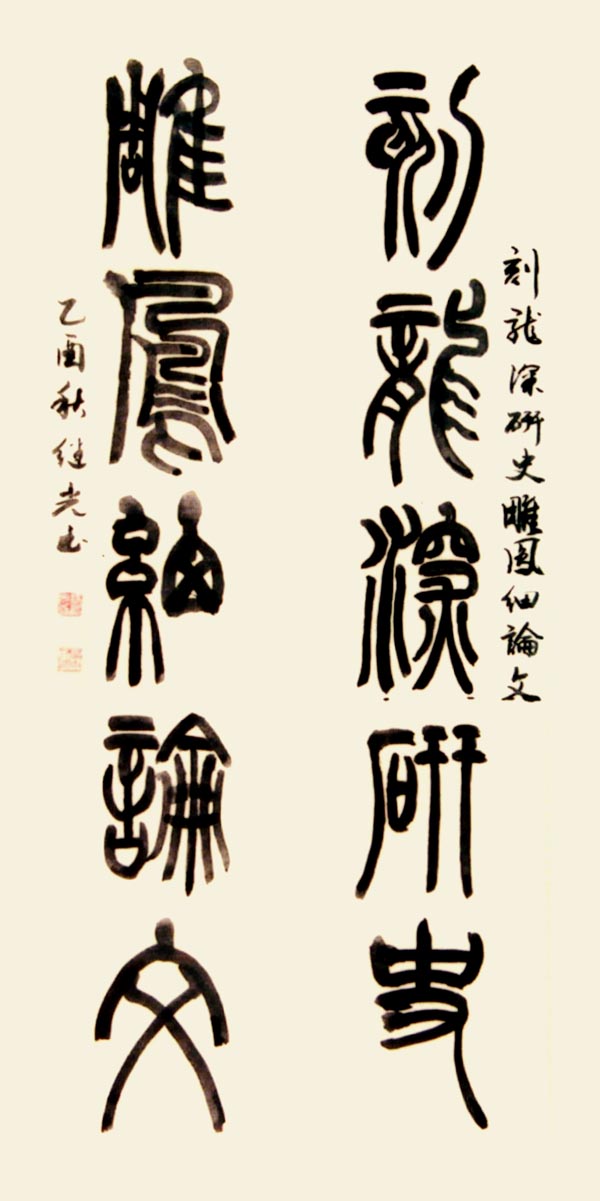 刻龍深研史雕鳳細論文
刻龍深研史
雕鳳細論文
乙酉秋继光书